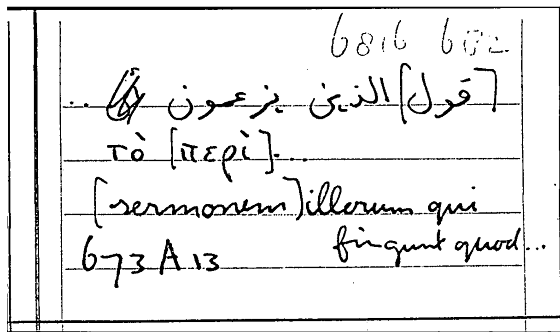 6816 602
[قول] الذين يزعمون ..
τὸ [περὶ]...
[sermonem] illorum qui
fingunt quod...
673 A 13